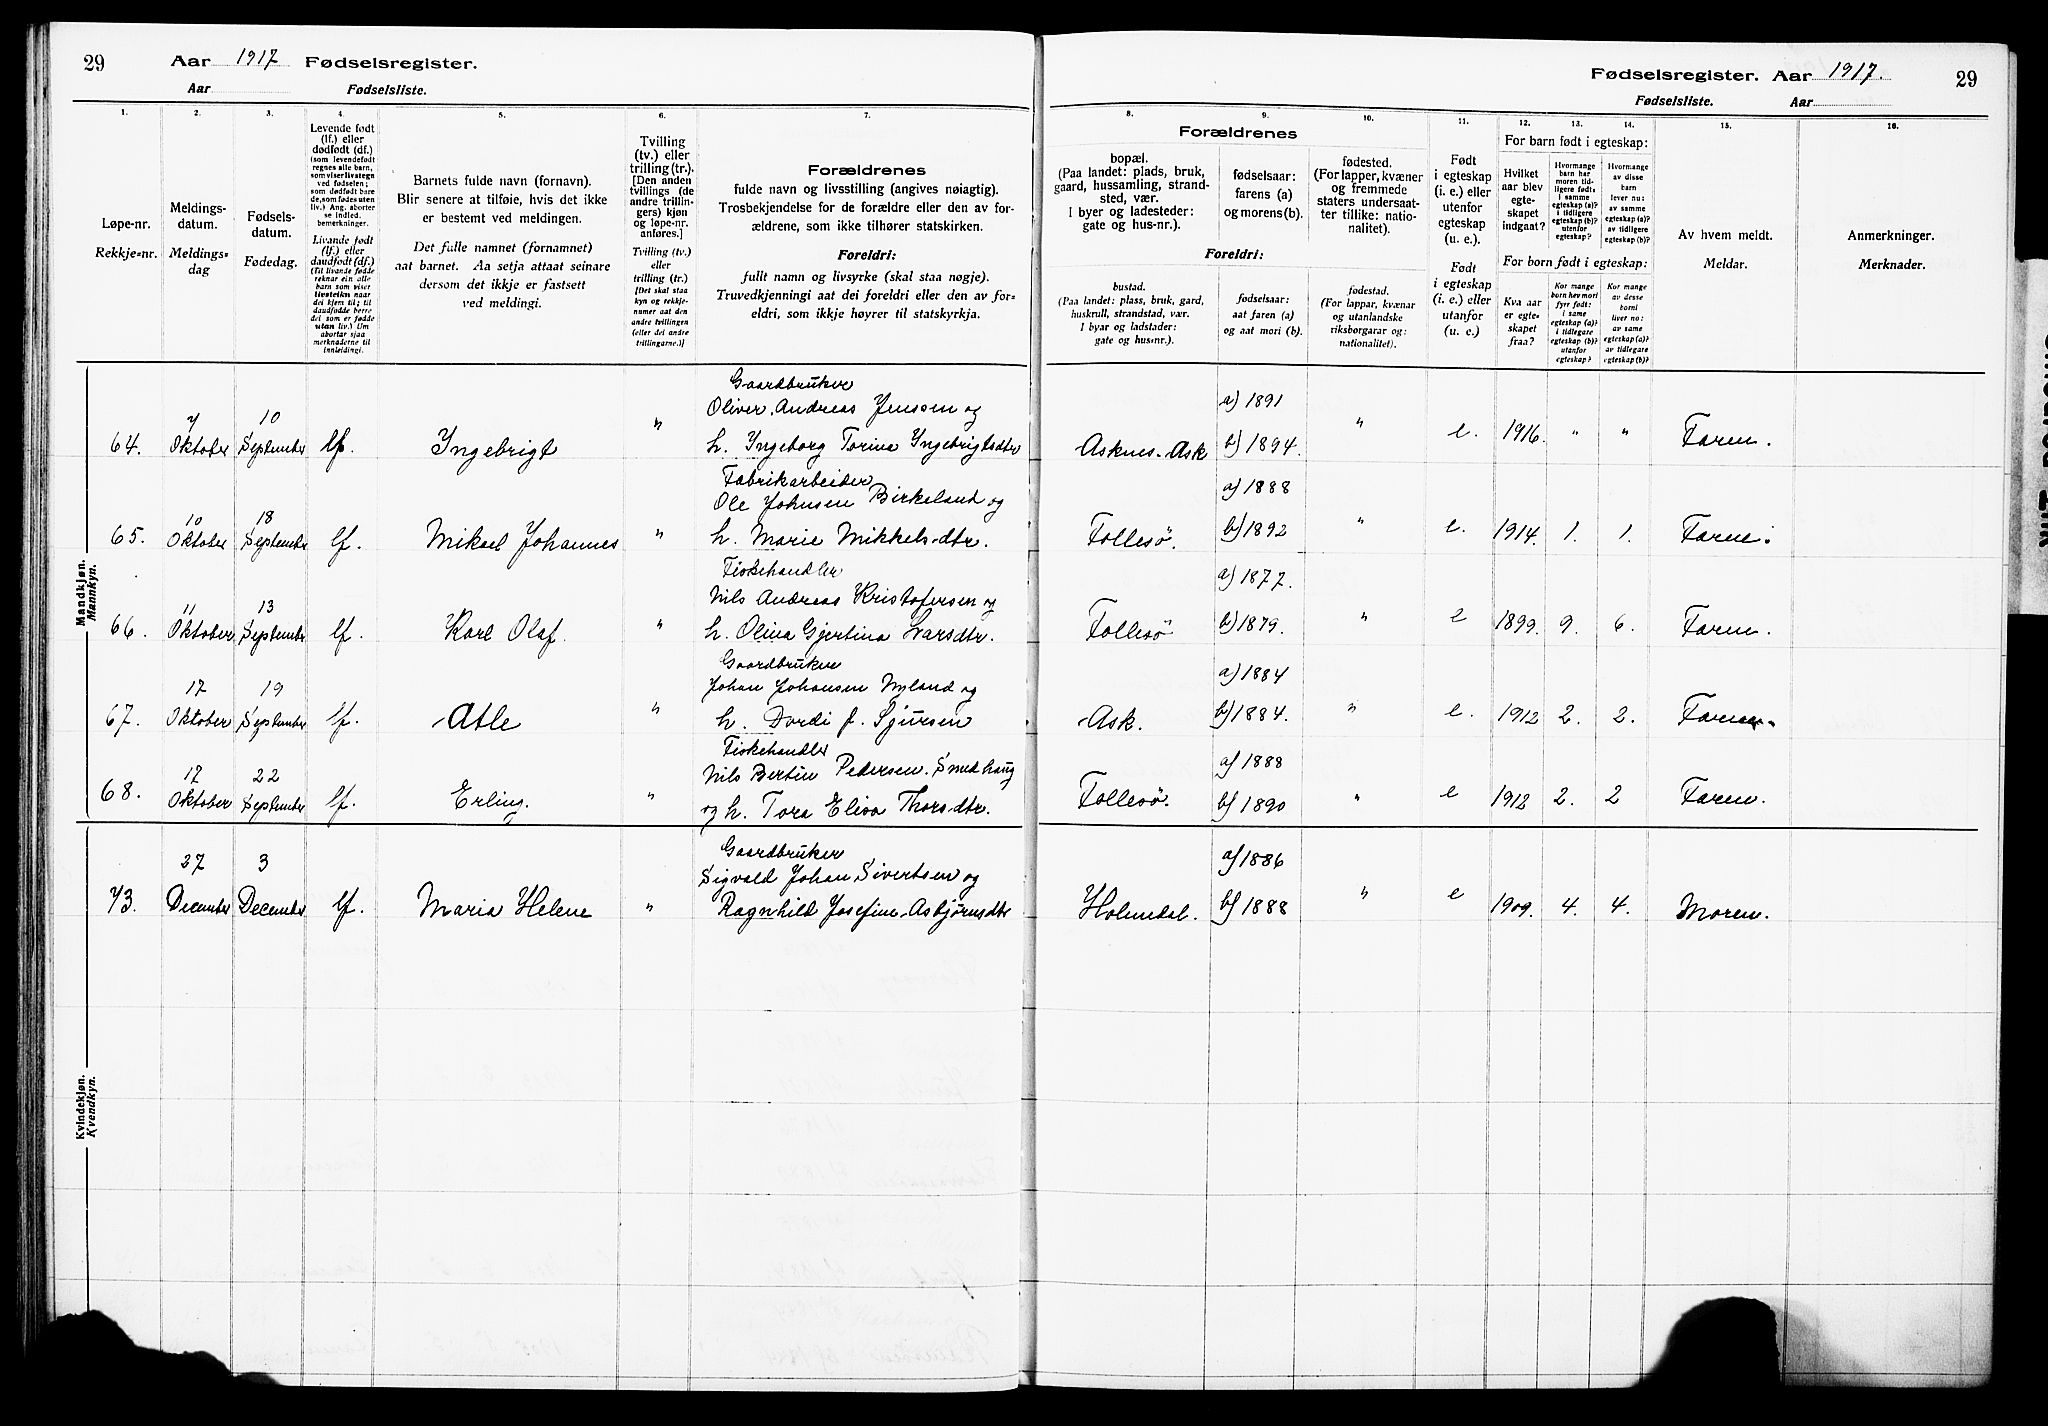 29 Aar 1917 Fødselsregister.
Aar Fødselsliste.
Fødselsregister. Aar 1917. 29
Fødselsliste. Aar
1. 2. 3. 4. 5. 6. 7. 8. 9. 10. 11. 12. 13. 14. 15. 16.
Løpe-nr.
Rekkje=nr.
Meldings-
datum.
Meldings=
dag
Fødsels-
datum.
Fødedag.
Levende født
(lf.) eller
dødfødt (df.)
(som levendefødt
regnes alle barn,
som viser livstegn
ved fødselen;
som dødfødt bare
de, som fødes uten
liv.) Ang. aborter
se indled.
bemerkninger.
Livande født
(lf.) eller
daudfødt (df.)
(Til livande fødde
reknar ein alle
barn som viser
livsteikn naar
dei kjem til; til
daudfødde berre
dei som er fødde
utan liv.) Um
abortar sjaa
merknaderne til
innleidingi.
Barnets fulde navn (fornavn).
Blir senere at tilføie, hvis det ikke
er bestemt ved meldingen.
Det fulle namnet (fornamnet)
aat barnet. Aa setja attaat seinare
dersom det ikkje er fastsett
ved meldingi.
Tvilling
(tv.) eller
trilling (tr.).
[Den anden
tvillings (de
andre trillin-
gers) kjøn
og løpe-nr.
anføres.]
Tvilling (tv.)
eller
trilling (tr.)
[Det skal staa
kyn og rekkje-
numer aat den
andre tvillingen
(eller dei andre
trillingarne.)]
Forældrenes
fulde navn og livsstilling (angives nøiagtig).
Trosbekjendelse for de forældre eller den av for-
ældrene, som ikke tilhører statskirken.
Foreldri:
fullt namn og livsyrke (skal staa nøgje).
Truvedkjenningi aat dei foreldri eller den av for=
eldri, som ikkje høyrer til statskyrkja.
Forældrenes
bopæl.
(Paa landet: plads, bruk,
gaard, hussamling, strand-
sted, vær.
I byer og ladesteder:
gate og hus-nr.).
fødselsaar:
farens (a)
og morens (b).
fødested.
(For lapper, kvæner
og fremmede
staters undersaat-
ter tillike: natio-
nalitet).
Foreldri:
bustad.
(Paa landet: plass, bruk, gard,
huskrull, strandstad, vær.
I byar og ladstader:
gate og hus=nr.).
fødselsaar:
aat faren (a)
og aat mori (b).
fødestad.
(For lappar, kvænar
og utanlandske
riksborgarar og:
nationalitet).
Født
i egteskap
(i. e.) eller
utenfor
egteskap
(u. e.).
Født
i egteskap
(i. e.) eller
utanfor
(u. e.).
For barn født i egteskap:
Hvilket
aar blev
egte-
skapet
indgaat?
Hvormange
barn har
moren tid-
ligere født:
i samme
egteskap (a)?
i tidligere
egteskap (b)?
utenfor
egteskap?
Hvormange
av disse
barn
lever nu:
av samme
egteskap (a)?
av tidligere
egteskap (b)?
For born født i egteskap:
Kva aar
er egte-
skapet
fraa?
Kor mange
born hev mori
fyrr født:
i same
egteskap (a)?
i tidlegare
egteskap (b)?
utanfor
egteskap?
Kor mange
av desse
borni
liver no:
av same
egteskap (a)?
av tidlegare
egteskap (b)?
Av hvem meldt.
Meldar.
Anmerkninger.
Merknader.
Mandkjøn.
Mannkyn.
64. 7 Oktober 10 September lf. Ingebrigt "
Gaardbruker
Oliver Andreas Jenssen og
h. Ingeborg Torina Ingebrigtsdtr
Asknes. Ask a) 1891 b) 1894. " e. 1916. " " Faren.
65. 10 Oktober 18 September lf. Mikael Johannes "
Fabrikarbeider
Ole Johnsen Birkeland og
h. Marie Mikkelsdtr.
Follesö. a) 1888 b) 1892 " e. 1914. 1. 1. Faren.
66. 11 Oktober 13 September lf. Karl Olaf. "
Fiskehandler
Nils Andreas Kristofersen og
h. Olina Gjertina Larsdtr.
Follesö a) 1877. b) 1879. " e 1899. 9. 6. Faren.
67. 17 Oktober 19 September lf. Atle "
Gaardbruker
Johan Johansen Nyland og
h. Dordi J. Sjursen
Ask. a) 1884 b) 1884. " e. 1912 2. 2. Faren.
68. 17 Oktober 22 September lf. Erling. "
Fiskehandler
Nils Bertin Pedersen. Smedhaug
og h. Tora Elisa Thorsdtr.
Follesö. a) 1888 b) 1890 " e 1912 2. 2 Faren.
Kvindekjøn.
Kvendkyn.
73. 27 December 3 December lf. Maria Helene "
Gaardbruker
Sigvald Johan Sivertsen og
Ragnhild Josefine Asbjørnsdtr
Holmedal. a) 1886 b) 1888 " e 1909. 4. 4. Moren.